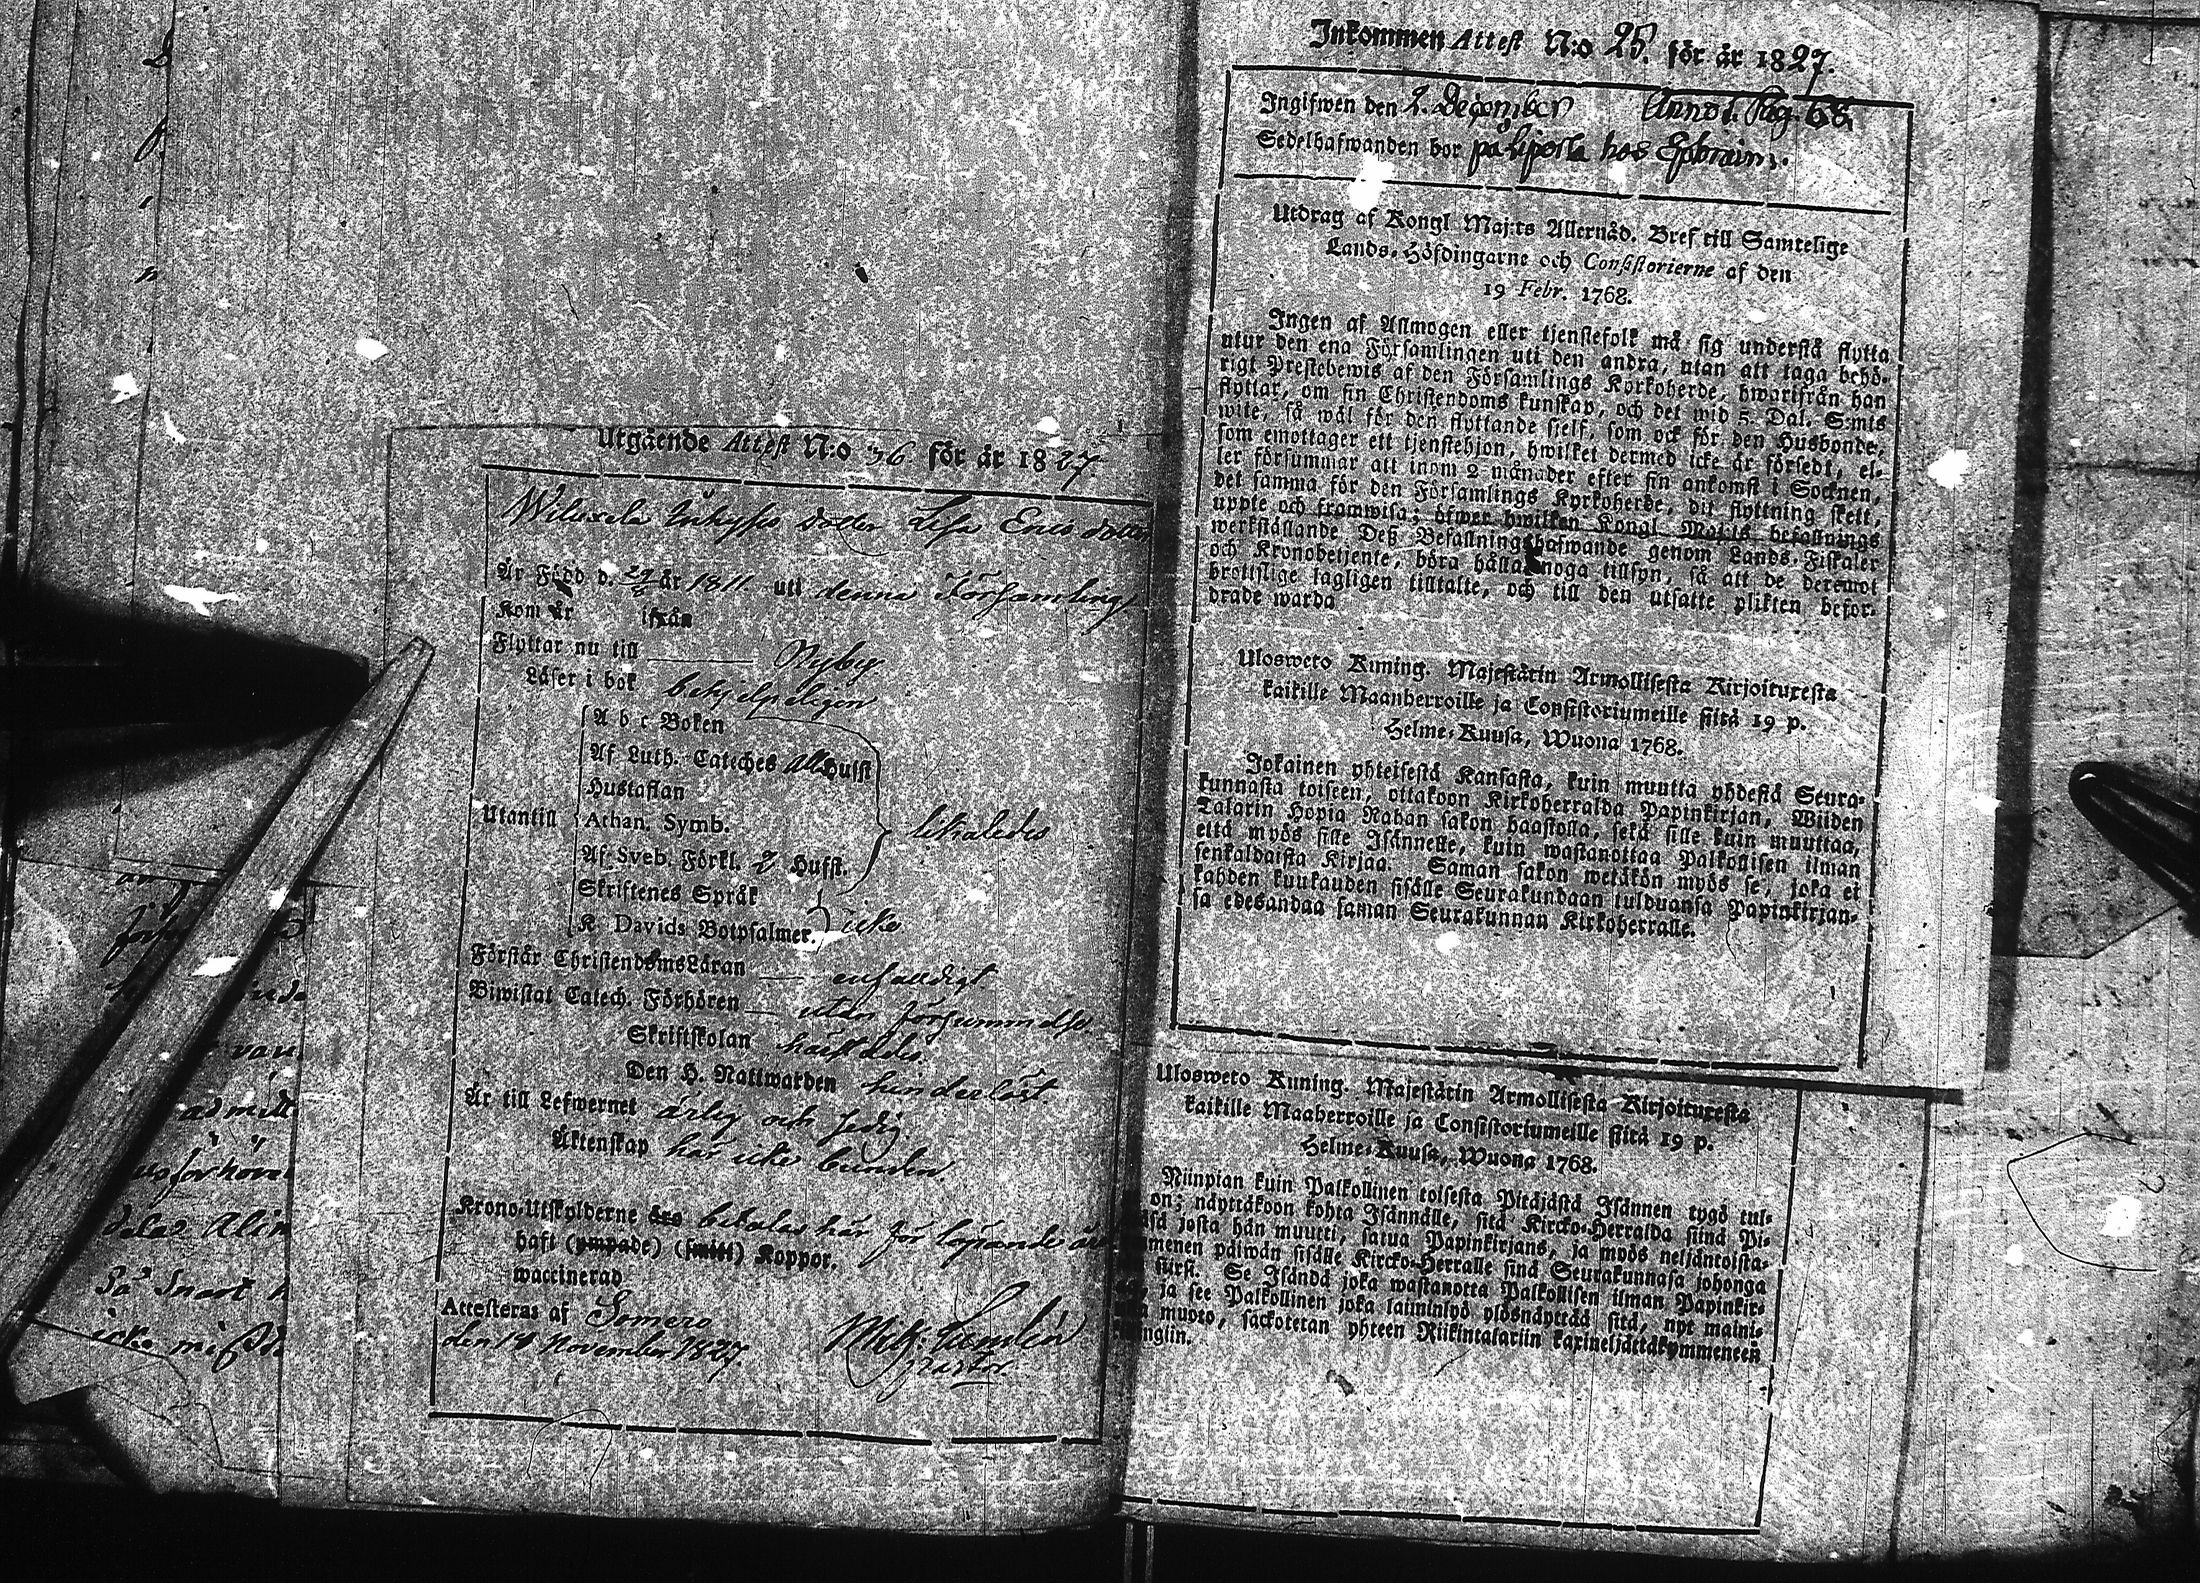 Utgående Attest N:o 36 för år 1827
Wiluxela Inhyses dotter Lisa Ericsdotter
Är Född d. 29/8 år 1811. uti denna Församling
Kom år ifrån
Flyttar nu till Nyby.
Läser i bok behjelpeligen
A b c Boken
Af Luth. Cateches alla Hufst
Hustaflan
Utantill Athan. Symb. likaledes
Af Sveb. Förkl. 2 Hufst.
Skriftenes Språk
K. Davids Botpsalmer. icke
Förstår Christendoms Läran enfaldigt.
Biwistat Catech. Förhören utan försummelse
Skriftskolan härstädes.
Den H. Nattwarden hinderlöst
Är till Lefwernet ärlig och sedig.
Äktenskap här icke bunden.
Krono-Utskylderne äro betalas här för löpande år
haft (ympade) (smitt) Koppor.
waccinerad
Attesteras af Somero
den 14 November 1827.
Pastor.
Inkommen Attest N:o 25. för år 1827.
Ingifwen den 2. December Anno i. Pag. 68.
Sedelhafwanden bor på Liposla hos Ephraim.
Utdrag af Kongl Maj:ts Allernåd. Bref till Samtelige
Lands-Höfdingarne och Consistorierne af den
19 Febr. 1768.
Ingen af Allmogen eller tjenstefolk må sig understå flytta
utur den ena Församlingen uti den andra, utan att taga behö-
rigt Prestebewis af den Församlings Kyrkoherde, hwarifrån han
flyttar, om sin Christendoms kunskap, och det wid 5. Dal. S:mts
wite, så wäl för den flyttande sjelf, som ock för den Husbonde,
som emottager ett tjenstehjon, hwilket dermed icke är försedt, el-
ler försummar att inom 2 månader efter sin ankomst i Socknen,
det samma för den Församlings Kyrkoherde, dit flyttning skett,
uppte och framwisa; öfwer hwilken Kongl. Maj:ts befallnings
werkställande Deß Befallningshafwande genom Lands-Fiskaler
och Kronobetjente, böra hålla noga tillsyn, så att de deremot
brottslige lagligen tilltalte, och till den utsatte plikten befor-
drade warda
Ulosweto Kuning. Majestätin Armollisesta Kirjoituxesta
kaikille Maanherroille ja Consistoriumeille siitä 19 p.
Helme-Kuusa, Wuona 1768.
Jokainen yhteisestä Kansasta, kuin muutta yhdestä Seura-
kunnasta toiseen, ottakoon Kirkoherralda Papinkirjan, Wiiden
Talarin Hopia Rahan sakon haastolla, sekä sille kuin muuttaa,
että myös sille Isännelle, kuin wastanottaa Palkollisen ilman
senkaldaista Kirjaa. Saman sakon wetäkön myös se, joka ei
kahden kuukauden sisälle Seurakundaan tulduansa Papinkirjan-
sa edesandaa saman Seurakunnan Kirkoherralle.
Ulosweto Kuning. Majestätin Armollisesta Kirjoituxesta
kaikille Maaherroille ja Consistoriumeille siitä 19 p.
Helme-Kuusa, Wuona 1768.
Niinpian kuin Palkollinen toisesta Pitäjästä Isännen tygö tul-
on; näyttäkoon kohta Isännälle, sitä Kircko-Herralda siinä Pi-
äsä josta hän muutti, saatua Papinkirjans, ja myös neljäntoista-
menen päiwän sisälle Kircko-Herralle sinä Seurakunnasa johonga
siirsi. Se Isändä joka wastanotta Palkollisen ilman Papinkir-
ja see Palkollinen joka laiminlyö ylösnäyttää sitä, nyt maini-
muoto, sackotetan yhteen Riikintalariin kaxineljättäkymmeneen
nglin.